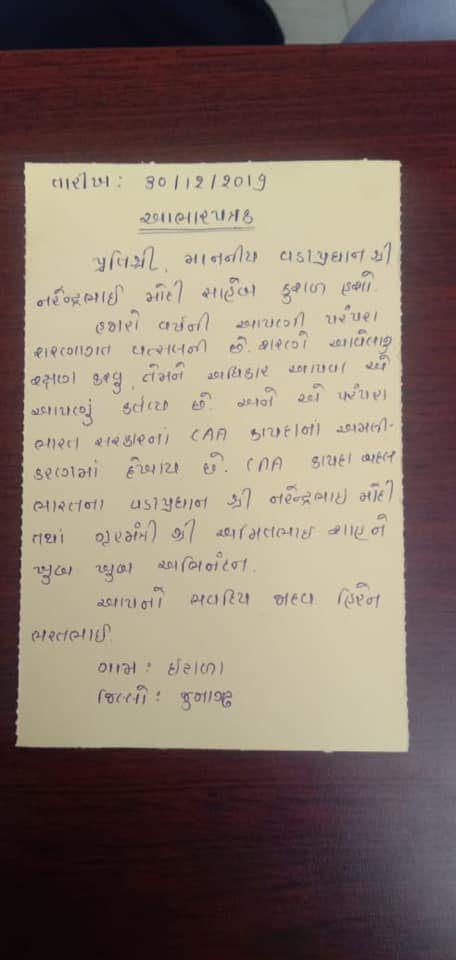 તારીખ: 30/12/2019
આભારપત્રક
પ્રતિશ્રી, માનનીય વડાપ્રધાન શ્રી
નરેન્દ્રભાઈ મોદી સાહેબ કુશળ હશો.
હજારો વર્ષની આપણી પરંપરા
શરણાગત વત્સલની છે. શરણે આવેલાનુ
રક્ષણ કરવુ, તેમને અધિકાર આપવા એ
આપણું કર્તવ્ય છે. અને એ પરંપરા
ભારત સરકારનાં CAA કાયદાના અમલી-
કરણમાં દેખાય છે. CAA કાયદા બદલ
ભારતના વડાપ્રધાન શ્રી નરેન્દ્રભાઇ મોદી
તથાં ગૃહમંત્રી શ્રી અમિતભાઇ શાહને
ખુબ ખુબ અભિનંદન.
આપનો ભવદિય હિરેન
ભરતભાઈ.
ગામ: ઇશાળા
જિલ્લો: જુનાગઢ